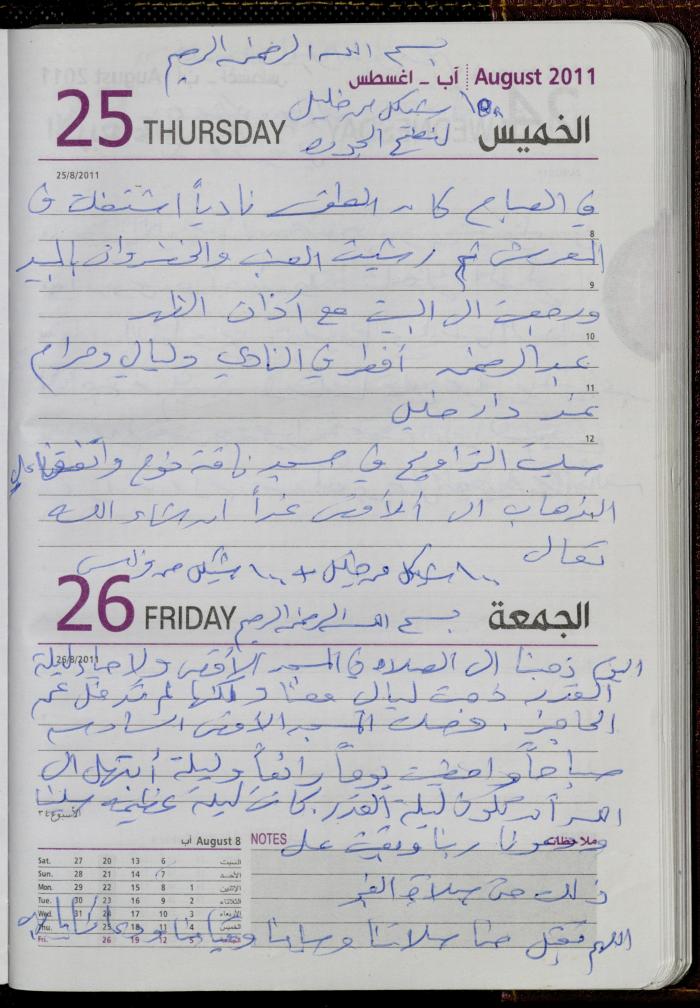 بسم الله الرحمن الرحيم
آب - اغسطس August 2011
25 THURSDAY الخميس
100 شيكل من خليل
25/8/2011
في الصباح كان الطقس نادياً اشتغلت في
8
المعرش ثم رشيت العنب والخضروات بالمبيد
9
ورجعت الى البيت مع آذان الظهر
10
عبد الرحمن أفطر في النادي وليالي ومرام
11
عند دار خليل
12
صليت التراويح في مسجد ناقة نوح واتفقنا على
الذهاب الى الأقصى غداً ان شاء الله
تعالى
100 شيكل من خليل + 100 شيكل من
26 FRIDAY الجمعة
بسم الله الرحمن الرحيم
26/8/2011
اليوم ذهبنا الى الصلاة في المسجد الأقصى ولاحياء ليلة
القدر ذهبت ليالي معنا ولكنها لم تدخل عن
الحاجز. وصلت المسجد الأقصى السادسة
صباحاً وامضيت يوماً رائعاً وليلة أبتهل الى
الله أن تكون ليلة القدر. كانت ليلة عظيمة صلينا
الأسبوع ٣٤
ودعونا ربنا وبقيت على
August 8 آب NOTES ملاحظات
ذلك حتى صلاة الفجر
اللهم تقبل منا صلاتنا وصيامنا وقيامنا
Sat. 27 20 13 6 السبت
Sun. 28 21 14 7 الأحد
Mon. 29 22 15 8 1 الاثنين
Tue. 30 23 16 9 2 الثلاثاء
Wed. 31 24 17 10 3 الأربعاء
Thu. 25 18 11 4 الخميس
Fri. 26 19 12 5 الجمعة